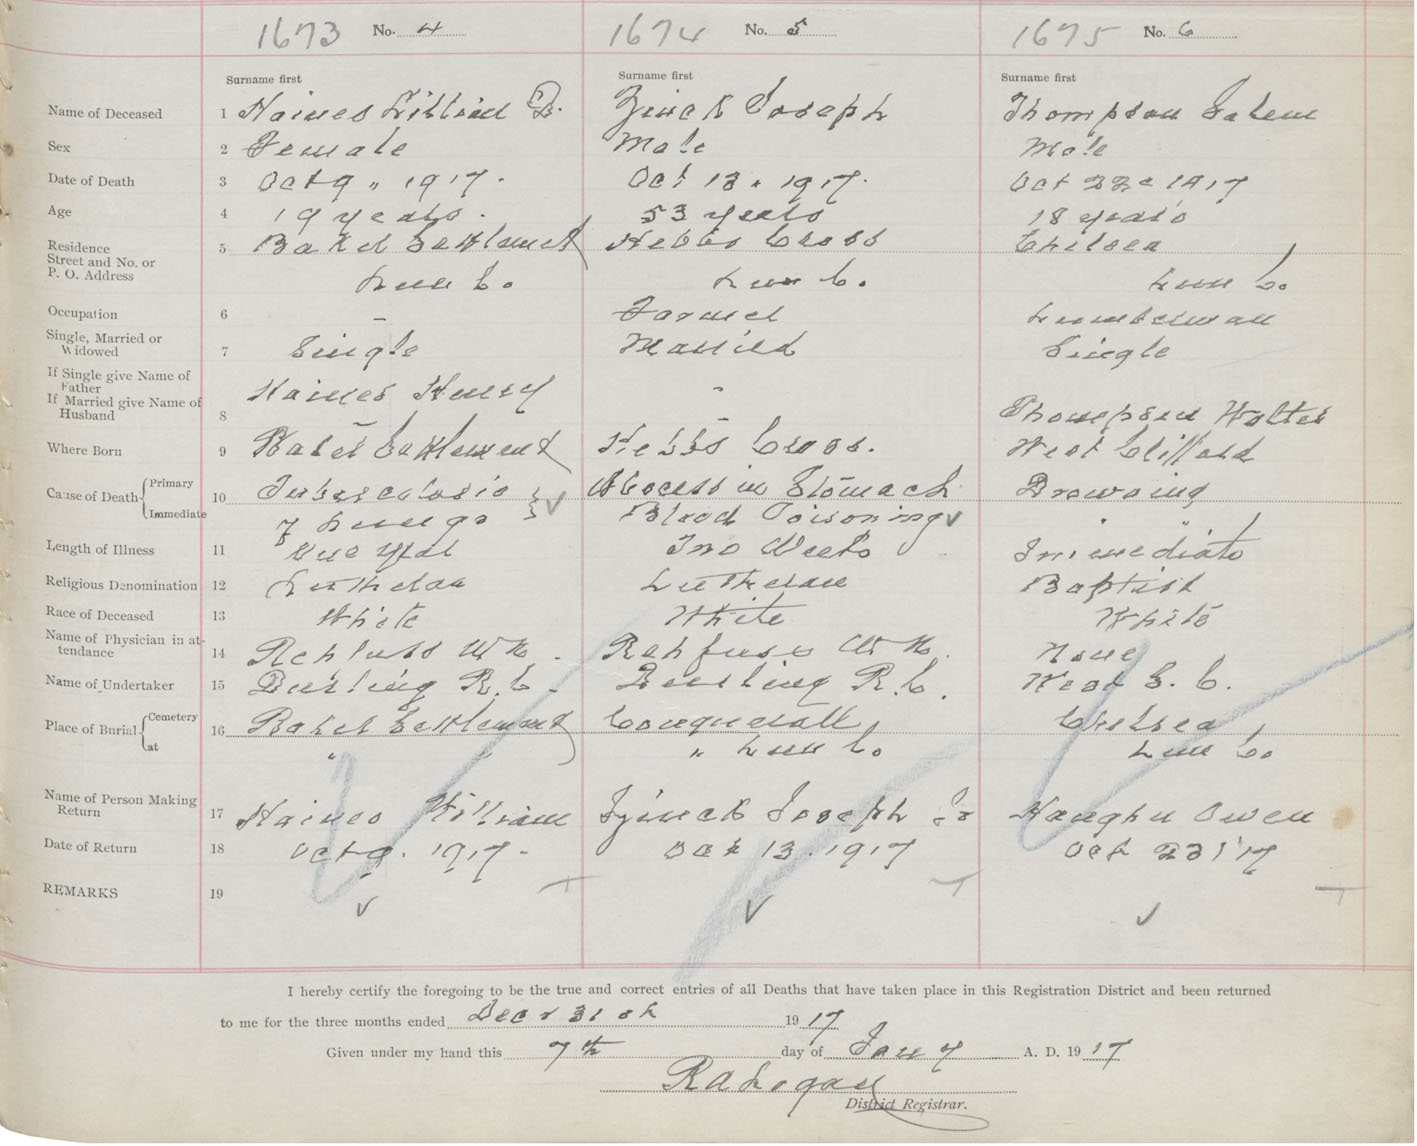 1673 No. 4 1674 No. 5 1675 No. 6
Surname first Surname first Surname first
Name of Deceased 1 Haines Lillian B. Zinck Joseph Thompson Salem
Sex 2 Female Male Male
Date of Death 3 Oct 9 " 1917. Oct 13 " 1917. Oct 22 1917
Age 4 19 years. 53 years 18 years
Residence
Street and No. or
P. O. Address 5 Baker Settlement Hebbs Cross Chelsea
Lun Co. Lun Co. Lun Co.
Occupation 6 – Farmer Lumberman
Single, Married or
Widowed 7 Single Married Single
If Single give Name of
Father
If Married give Name of
Husband 8 Haines Henry – Thompson Walter
Where Born 9 Baker Settlement Hebbs Cross. West Clifford
Cause of Death { Primary 10 Tuberculosis Abscess in Stomach Drowning
Immediate of Lungs Blood Poisoning " "
Length of Illness 11 One Year Two Weeks Immediate
Religious Denomination 12 Lutheran Lutheran Baptist
Race of Deceased 13 White White White
Name of Physician in at-
tendance 14 Rehfuss W N. Rehfuss W N. None
Name of Undertaker 15 Durling R. C. Durling R. C. West S. C.
Place of Burial { Cemetery 16 Baker Settlement Conquerall Chelsea
at " " " Lun Co. Lun Co.
Name of Person Making
Return 17 Haines William Zinck Joseph Jr Owen
Date of Return 18 Oct 9. 1917. Oct 13. 1917 Oct 23 1'17
REMARKS 19
I hereby certify the foregoing to be the true and correct entries of all Deaths that have taken place in this Registration District and been returned
to me for the three months ended Decr 31st 19 17
Given under my hand this 7th day of Jany A. D. 19 17
R A Logan
District Registrar.